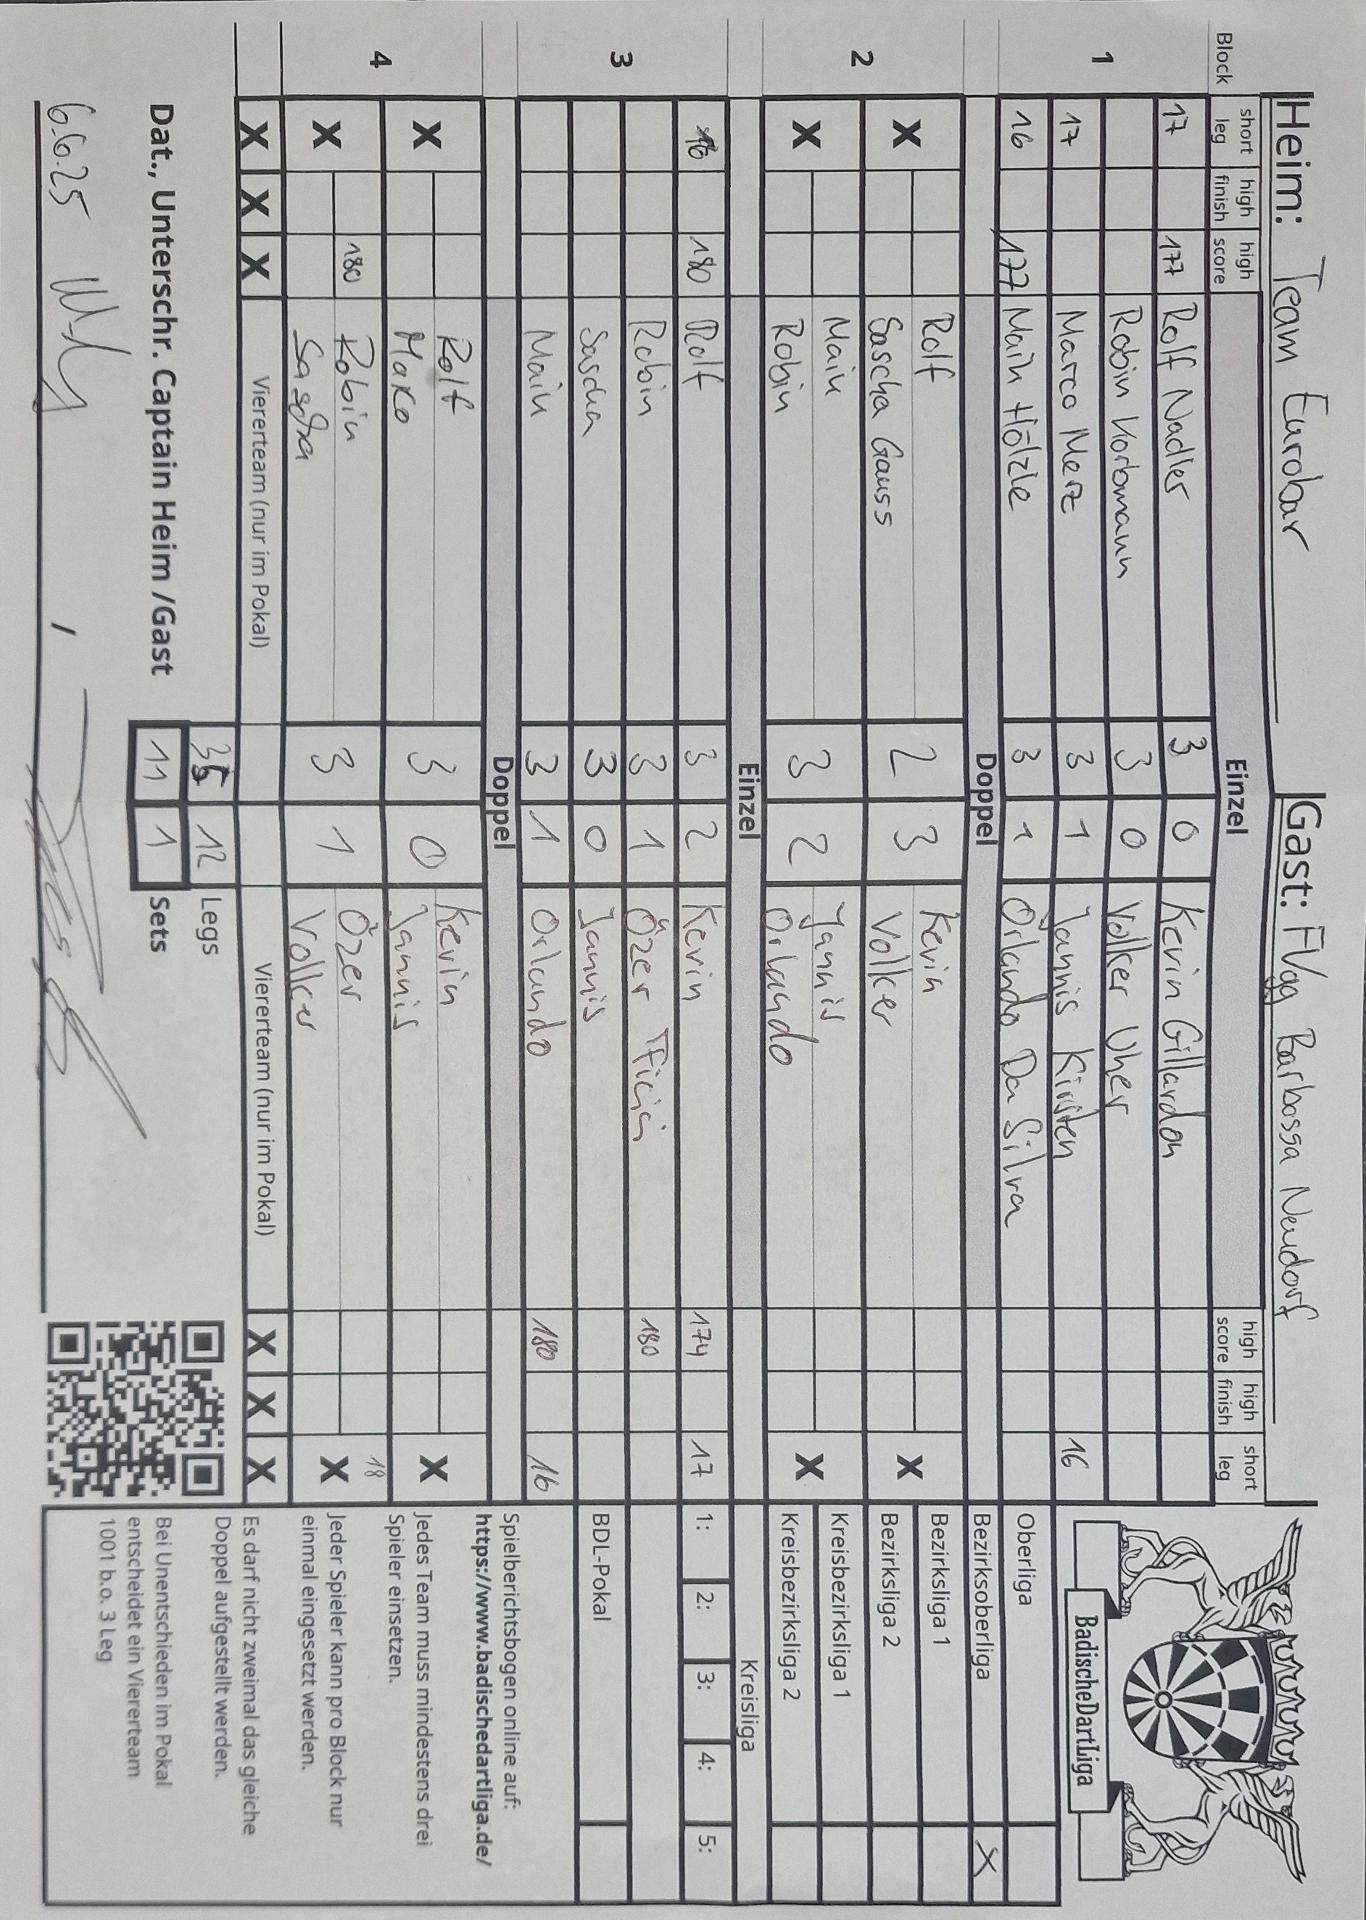 Heim: Team Eurobar Gast: FVgg Barbossa Neudorf
Block short leg high finish high score Einzel high score high finish short leg
1
17 177 Rolf Nadler 3 0 Kevin Gillardon
Robin Korbmann 3 0 Volker Uher
17 Marco Merz 3 1 Jannis Kirsten 16
16 177 Maik Hölzle 3 1 Orlando Da Silva
Doppel
2
X Rolf 2 3 Kevin X
Sascha Gauss Volker
X Maik 3 2 Jannis X
Robin Orlando
Einzel
3
16 180 Rolf 3 2 Kevin 174 17
Robin 3 1 Özer 180
Sascha 3 0 Jannis
Maik 3 1 Orlando 180 16
Doppel
4
X Rolf 3 0 Kevin X
Marco Jannis
X 180 Robin 3 1 Özer 18 X
Sascha Volker
X X X Viererteam (nur im Pokal) Viererteam (nur im Pokal) X X X
35 12 Legs
Dat., Unterschr. Captain Heim /Gast 11 1 Sets
6.6.25 ,
BadischeDartLiga
Oberliga
Bezirksoberliga X
Bezirksliga 1
Bezirksliga 2
Kreisbezirksliga 1
Kreisbezirksliga 2
Kreisliga
1: 2: 3: 4: 5:
BDL-Pokal
Spielberichtsbogen online auf:
https://www.badischedartliga.de/
Jedes Team muss mindestens drei
Spieler einsetzen.
Jeder Spieler kann pro Block nur
einmal eingesetzt werden.
Es darf nicht zweimal das gleiche
Doppel aufgestellt werden.
Bei Unentschieden im Pokal
entscheidet ein Viererteam
1001 b.o. 3 Leg